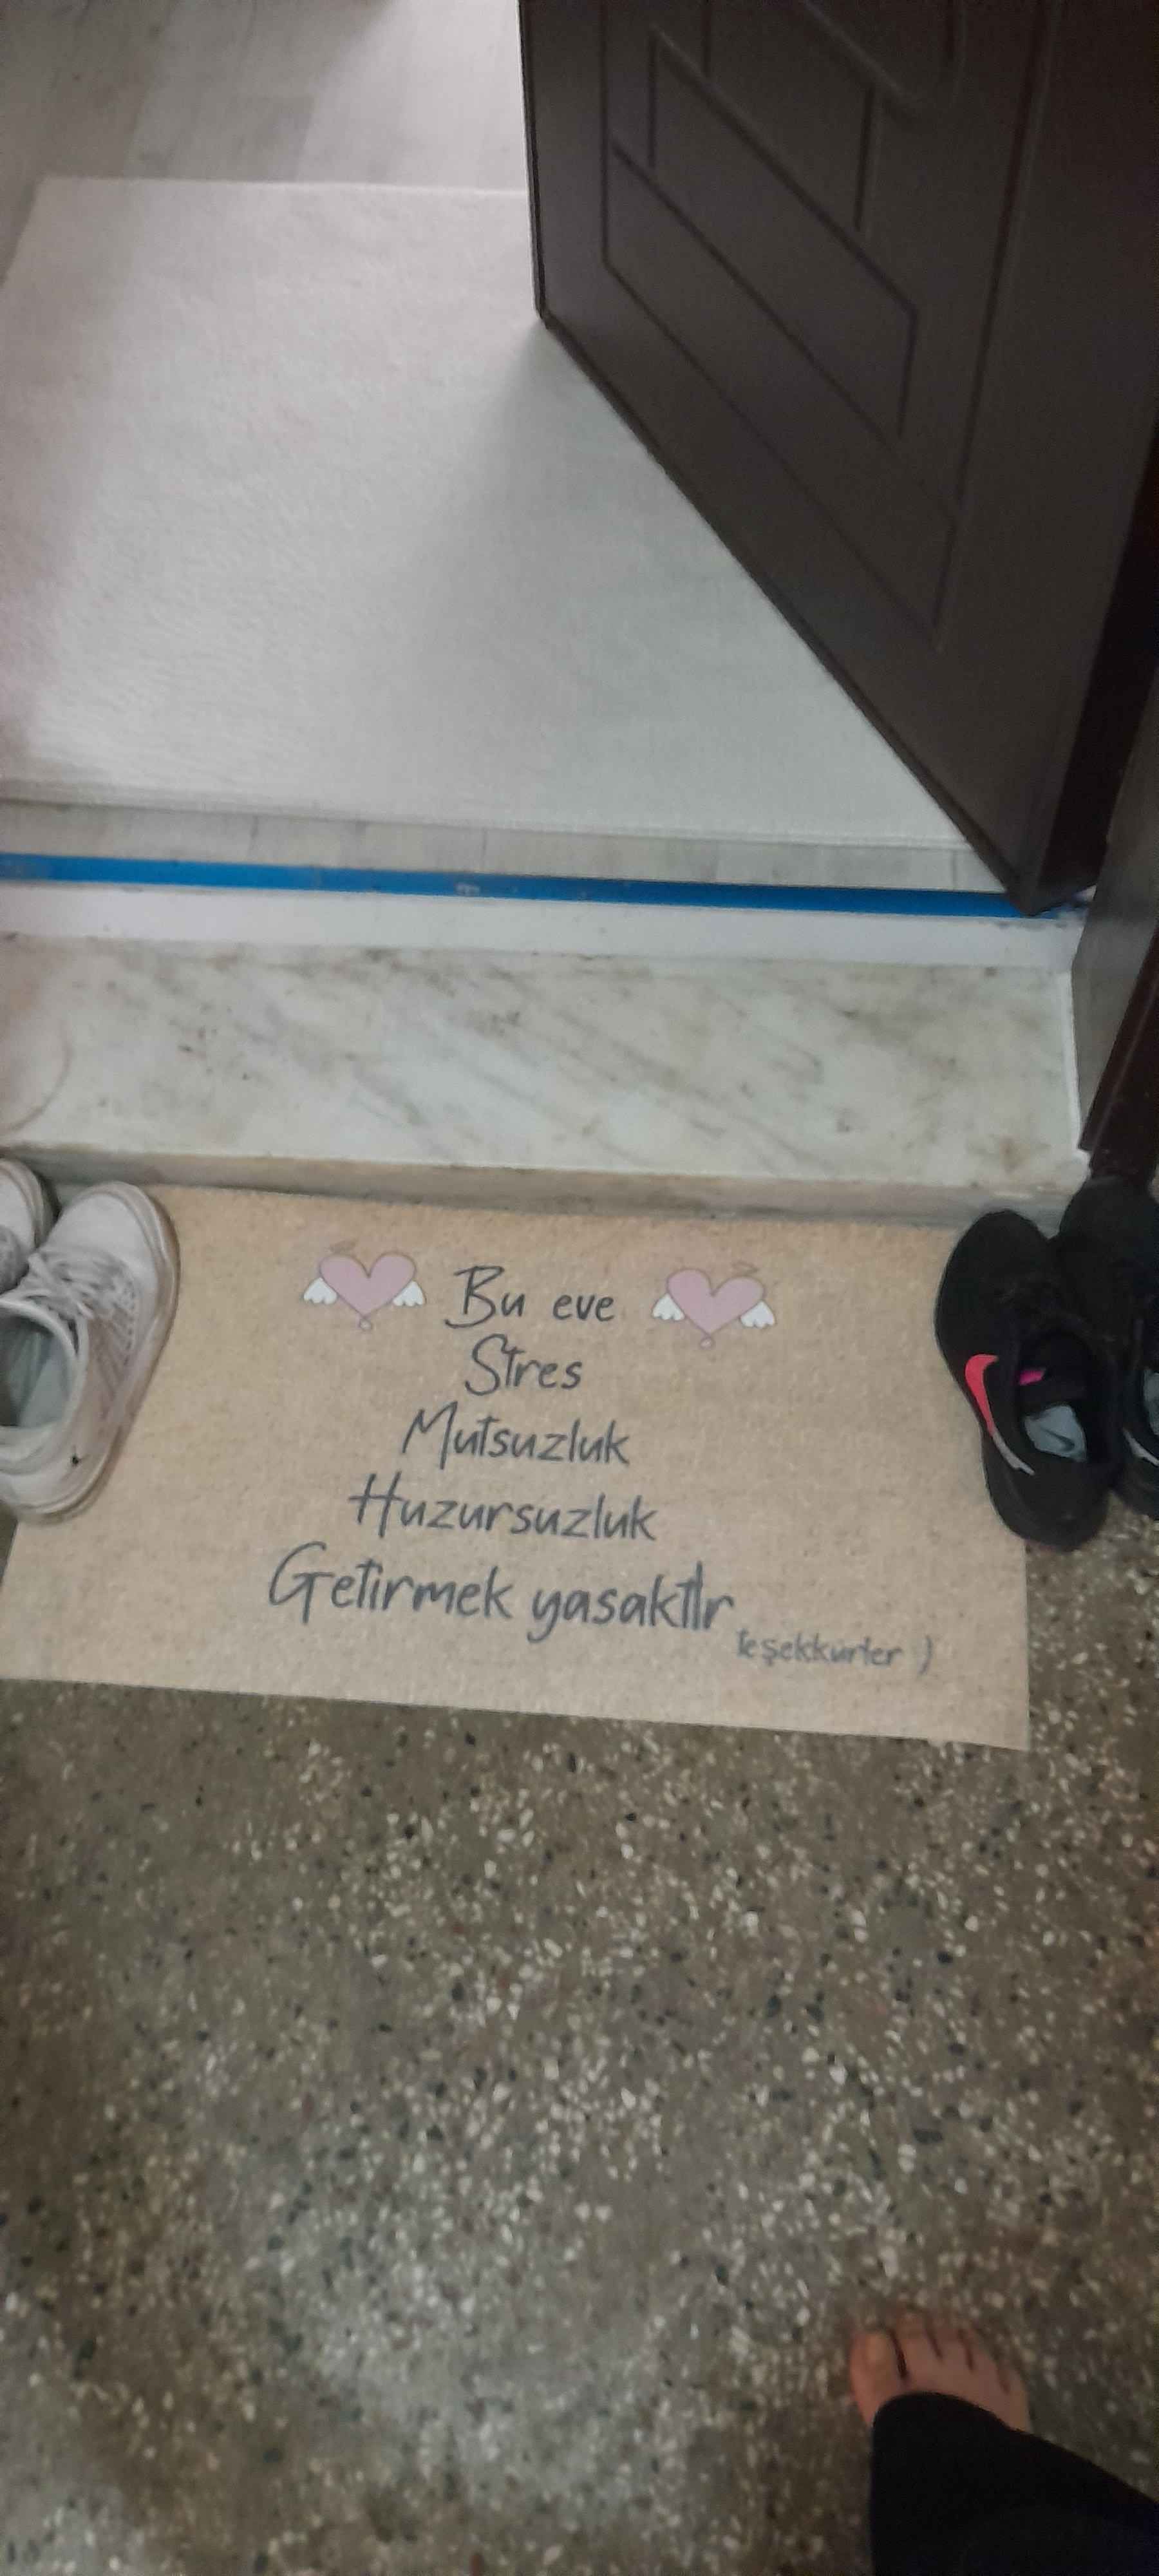 Bu eve
Stres
Mutsuzluk
Huzursuzluk
Getirmek yasaktır
teşekkürler )